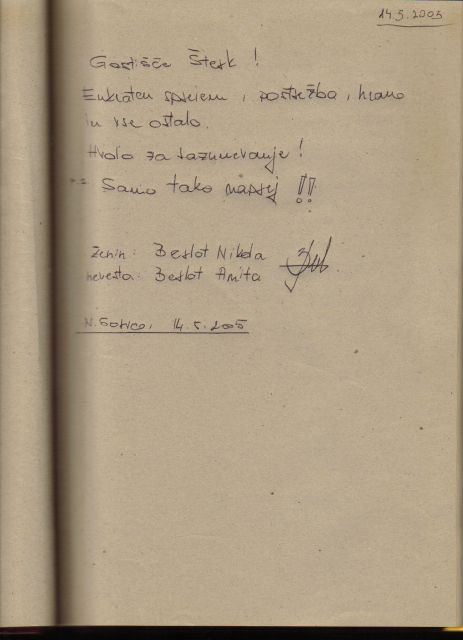 14.5.2005
Gostišče Šterk !
Enkraten sprejem, postrežba, hrano
in vse ostalo.
Hvala za razumevanje !
Samo tako naprej !!
Ženin: Beslot Nikola
nevesta: Beslot Anita
N. Gorica, 14.5.2005